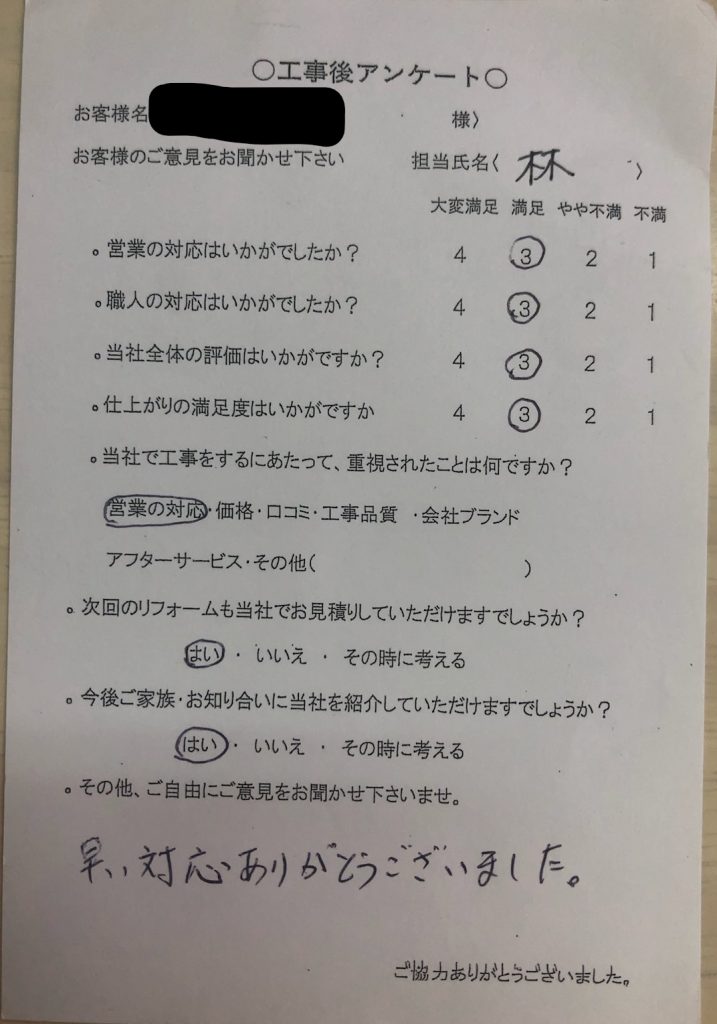 〇工事後アンケート〇
お客様名 様〉
お客様のご意見をお聞かせ下さい 担当氏名〈 林 〉
大変満足 満足 やや不満 不満
。営業の対応はいかがでしたか？ 4 3 2 1
。職人の対応はいかがでしたか？ 4 3 2 1
。当社全体の評価はいかがですか？ 4 3 2 1
。仕上がりの満足度はいかがですか 4 3 2 1
。当社で工事をするにあたって、重視されたことは何ですか？
営業の対応・価格・口コミ・工事品質 ・会社ブランド
アフターサービス・その他( )
。次回のリフォームも当社でお見積りしていただけますでしょうか？
はい ・ いいえ ・ その時に考える
。今後ご家族・お知り合いに当社を紹介していただけますでしょうか？
はい ・ いいえ ・ その時に考える
。その他、ご自由にご意見をお聞かせ下さいませ。
早い対応ありがとうございました。
ご協力ありがとうございました。